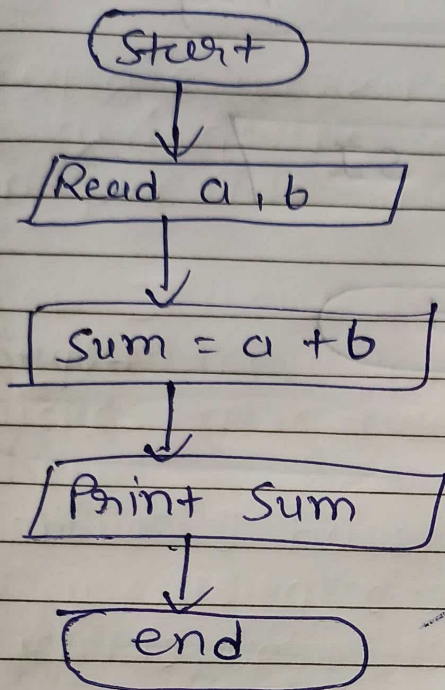 Start
Read a, b
Sum = a + b
Print Sum
end